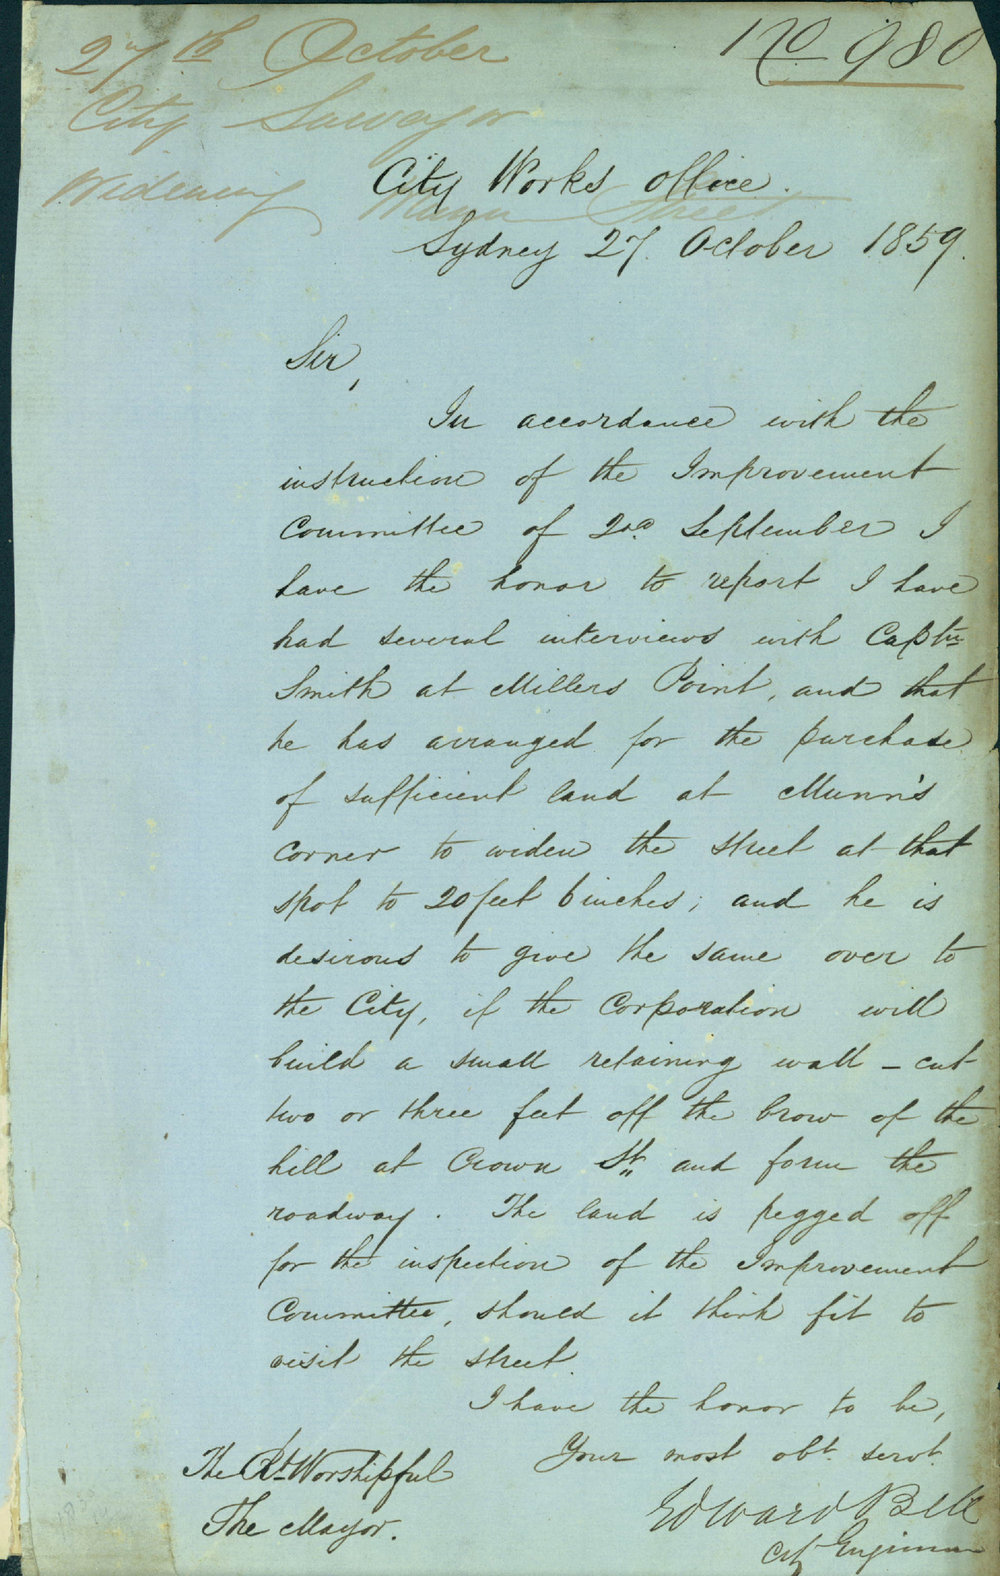 No 980
27th October
City Surveyor
Widening Munn Street
City Works Office.
Sydney 27. October 1859.
Sir,
In accordance with the
instruction of the Improvement
Committee of 2nd September I
have the honor to report I have
had several interviews with Captn
Smith at Millers Point, and that
he has arranged for the purchase
of sufficient land at Munn's
corner to widen the street at that
spot to 20 feet 6 inches; and he is
desirous to give the same over to
the City, if the Corporation will
build a small retaining wall - cut
two or three feet off the brow of the
hill at Crown St. and form the
roadway. The land is pegged off
for the inspection of the Improvement
Committee, should it think fit to
visit the street
I have the honor to be,
Your most obt. servt.
Edward Bell
City Engineer
The Rt. Worshipful
The Mayor.